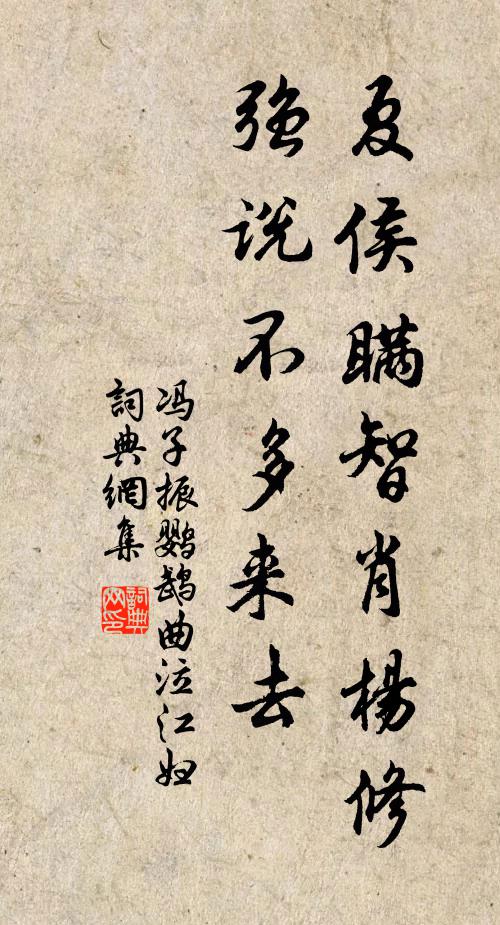 夏侯瞒智肖楊修
强说不多来去
冯子振鹦鹉曲泣江妇
詞典網集
詞典
网印